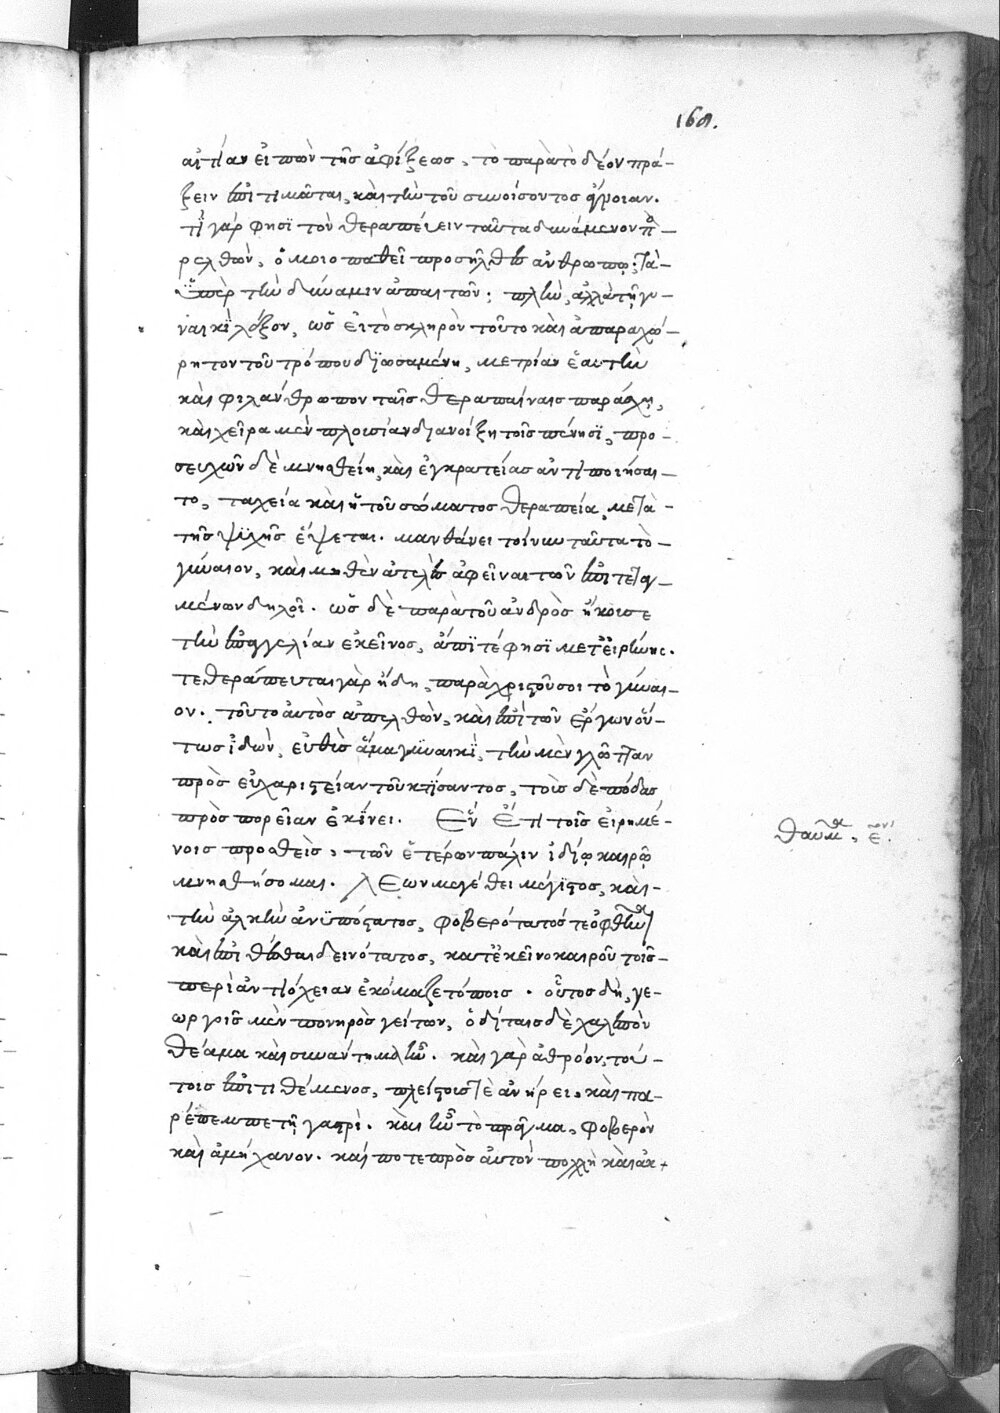 168.
αἰτίαν εἰπὼν τῆς ἀφίξεως, τὸ παρὰ τὸ δέον πρά-
ξειν ἐπιτιμᾶται, καὶ τὴν τοῦ συνοίσοντος ἄγνοιαν.
τί γάρ φησϊ τὸν θεραπεύειν ταῦτα δυνάμενον π
ρελθὼν, ὁμοιοπαθεῖ προσῆλθες ἀνθρώπῳ; τὰ-
ὑπὲρ τὴν δύναμιν ἀπαιτῶν; πλὴν, ἀλλὰ τῇ γυ-
ναικὶ λέξον, ὡς εἰ τὸ σκληρὸν τοῦτο καὶ ἀπαραχώ-
ρητον τοῦ τρόπου διωσαμένη, μετρίαν ἑαυτὴν
καὶ φιλάνθρωπον ταῖς θεραπαίναις παράσχῃ,
καὶ χεῖρα μὲν πλουσίαν διανοίξῃ τοῖς πένησϊ, προ-
σευχῶν δὲ μνησθείη, καὶ ἐγκρατείας ἀντιποιήσαι-
το, ταχεία καὶ ἡ τοῦ σώματος θεραπεία, μετὰ-
τῆς ψυχῆς ἕψεται. μανθάνει τοίνυν ταῦτα τὸ-
γύναιον, καὶ μηθὲν ἀτελὲς ἀφεῖναι τῶν ἐπιτεταγ-
μένων δηλοῖ. ὡς δὲ παρὰ τοῦ ἀνδρὸς ἤκουσε
τὴν ἐπαγγελίαν ἐκεῖνος, ἄπιτέ φησϊ μετ' εἰρήνης.
τεθεράπευται γὰρ ἤδη, παρὰ χριστοῦ σοι τὸ γύναι-
ον. τοῦτο αὐτὸς ἀπελθὼν, καὶ ἐπὶ τῶν ἔργων οὕ-
τως ἰδὼν, εὐθὺς ἅμα γυναικὶ, τὴν μὲν γλῶτταν
πρὸς εὐχαριστείαν τοῦ κτίσαντος, τοὺς δὲ πόδας
πρὸς πορείαν ἐκίνει. Ἓν ἔτι τοῖς εἰρημέ-
νοις προσθεὶς, τῶν ἑτέρων πάλιν ἰδίῳ καιρῷ
μνησθήσομαι. Λέων μεγέθει μέγιστος, καὶ-
τὴν ἀλκὴν ἀνυπόστατος, φοβερότατός τε ὀφθῆναι
καὶ ἐπιθέσθαι δεινότατος, κατ' ἐκεῖνο καιροῦ τοῖς-
περὶ ἀντιόχειαν ἐκόμαζε τόποις. οὗτος δὴ, γε-
ωργοῖς μὲν πονηρὸς γείτων, ὁδίταις δὲ χαλεπὸν
θέαμα καὶ συνάντημα ἦν. καὶ γὰρ ἀθρόον τού-
τοις ἐπιτιθέμενος, πλείστους τὲ ἀνῄρει, καὶ πα-
ρέπεμπε τῇ γαστρί. καὶ ἦν τὸ πρᾶγμα, φοβερὸν
καὶ ἀμήχανον. καί ποτε πρὸς αὐτὸν πολλὴ καὶ ἀκ
θαῦμα, ἓν.